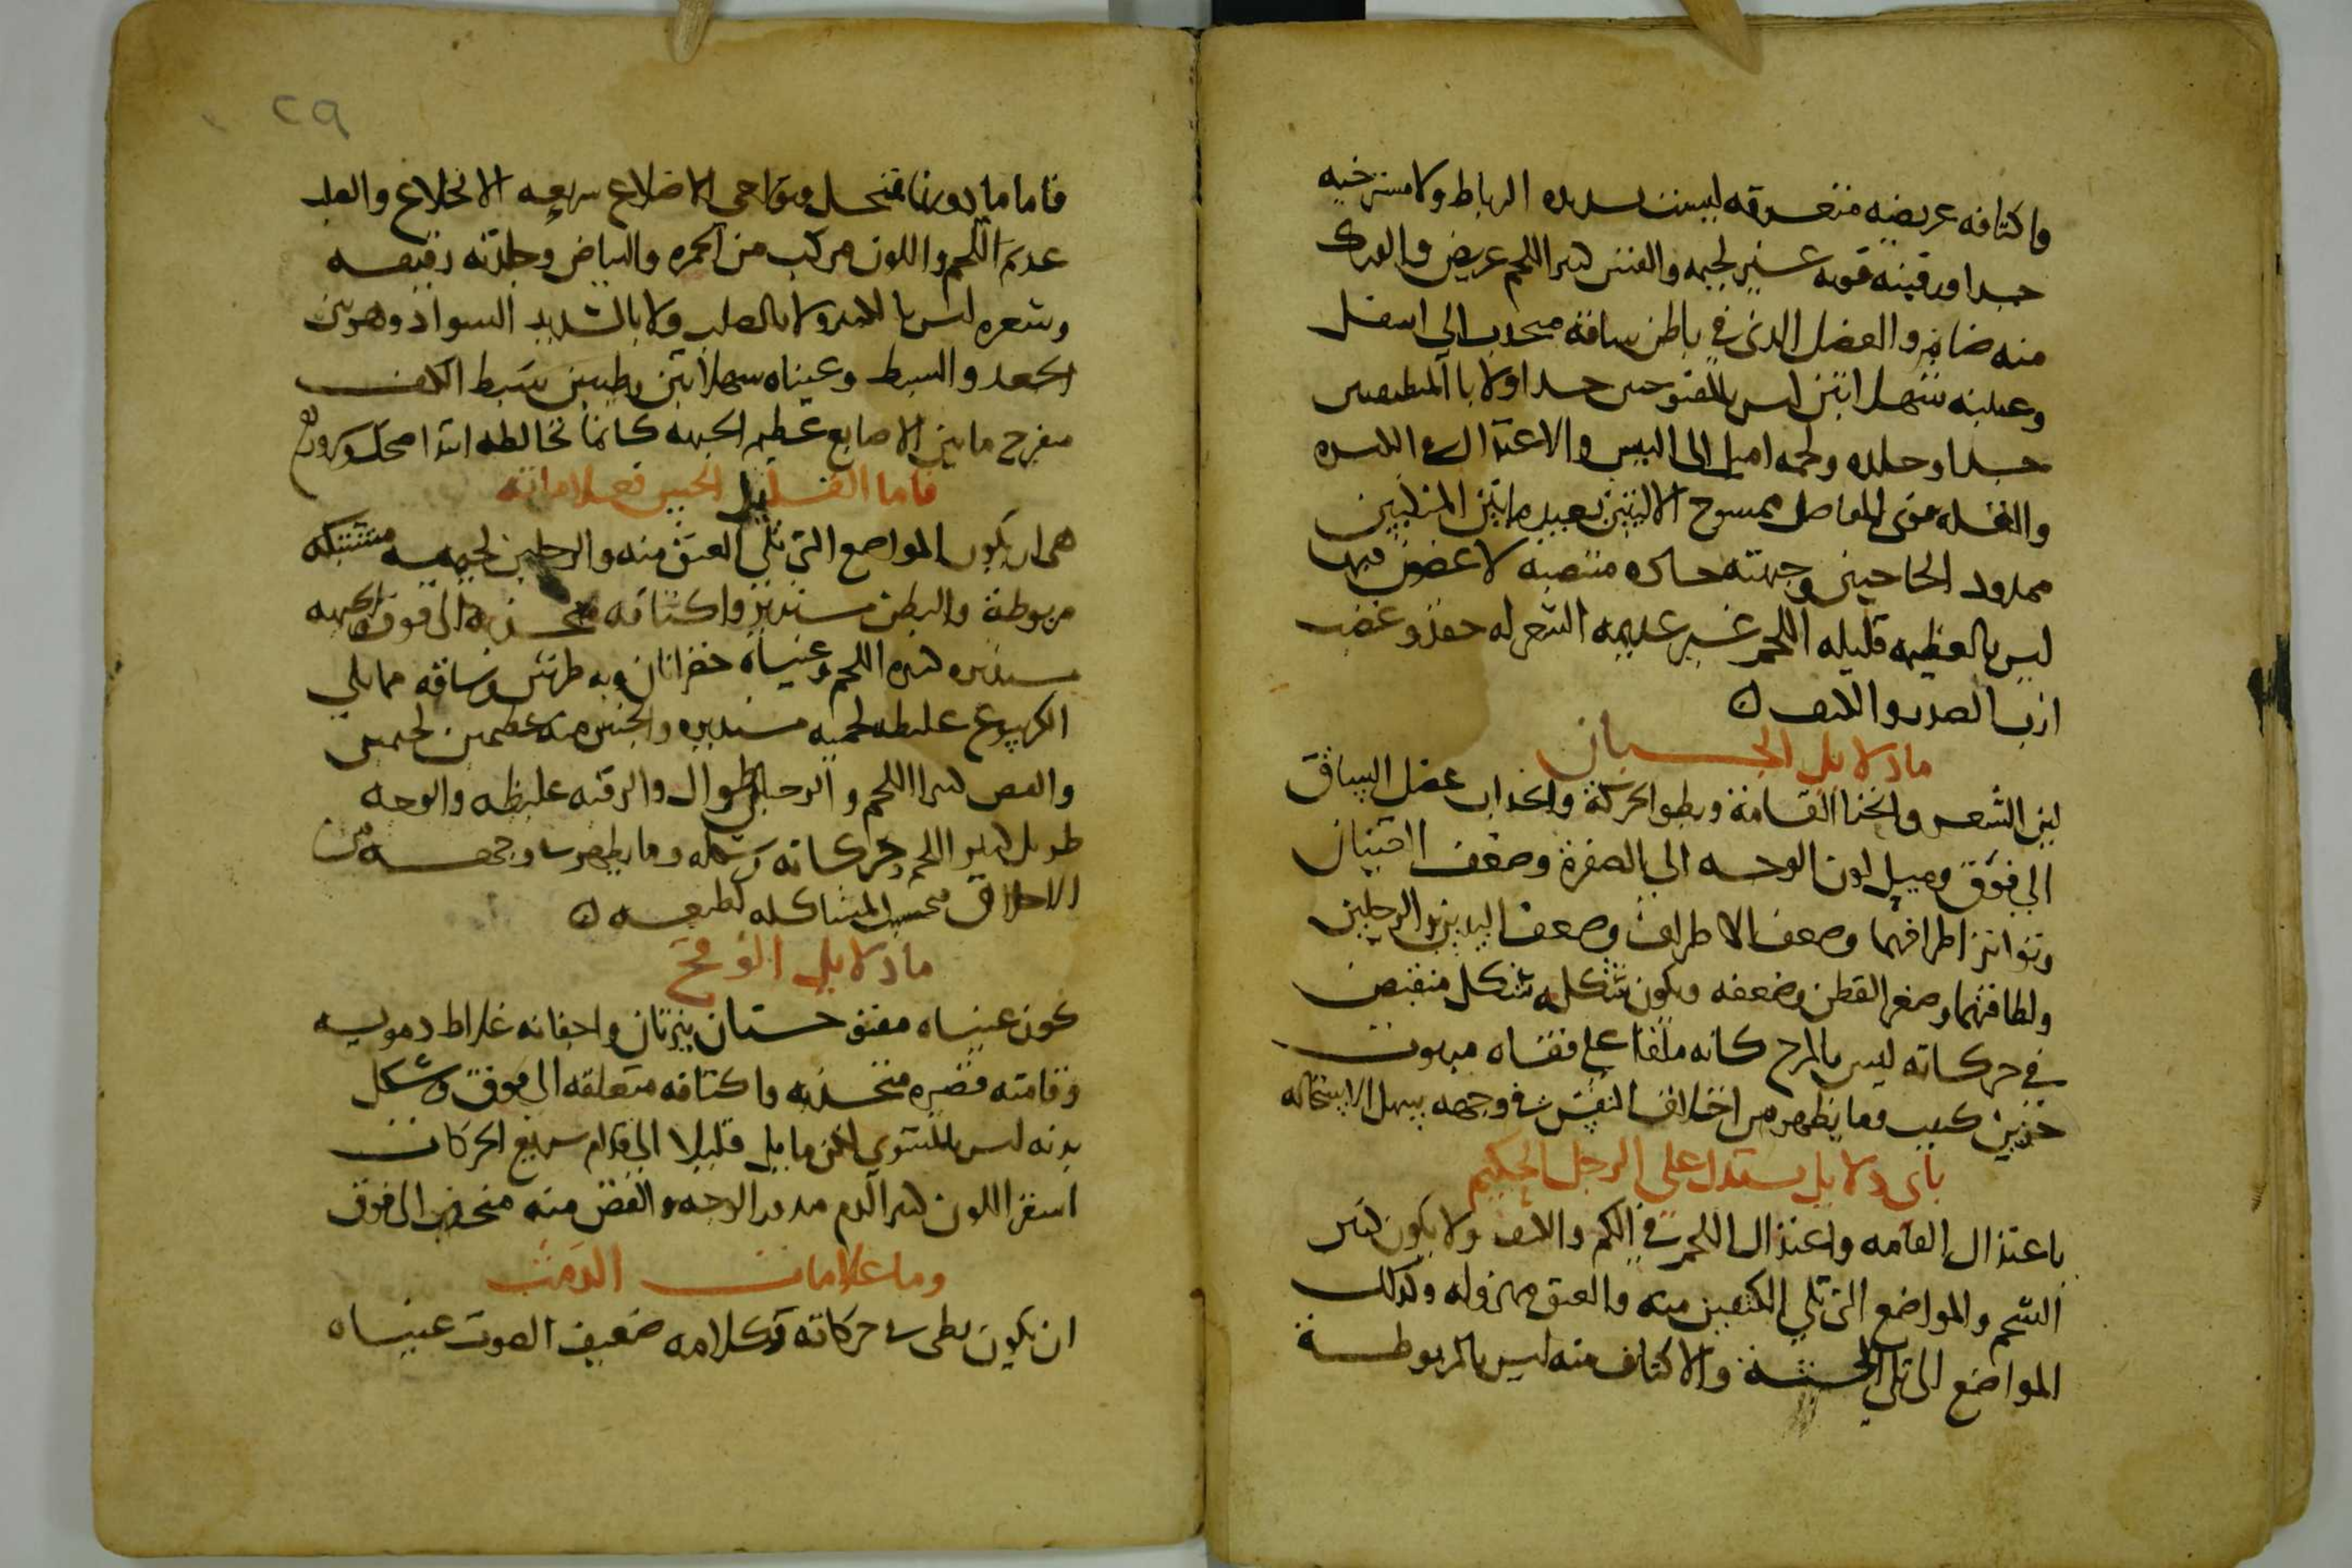 واكتافه عريضه متفرقه ليست بشديده الرباط ولا مسترخيه
جدا ورقبته قويه غير لحيمه والقص كثير اللحم عريض والورك
منه ضامر والعضل الذي في باطن ساقه منجذب الى اسفل
وعينيه شهلاتين ليس بالمفتوحين جدا ولا بالمنطبقين
جدا وجلده ولحمه اميل الى اليبس والاعتدال
قوي المفاصل ممسوح الاليتين بعيد ما بين المنكبين
ممدود الحاجبين وجبهته حاده منتصبه لا غضون فيها
ليس بالعظيمه قليله اللحم غير عديمه الشعر له حقد وغضب
ازب الصدر والكتف ن
ما دلايل الجبان
لين الشعر وانحنا القامة وبطو الحركة وانجذاب عضل الساق
الى فوق وميل لون الوجه الى الصفرة وضعف العينان
وتواتر اطرافهما وضعف الاطراف وضعف اليدين والرجلين
ولطافتهما وصغر القطن وضعفه ويكون شكله شكل منقبض
في حركاته ليس بالمرح كانه ملقا على قفاه مبهوت
حزين كييب وما يظهر من اخلاق النفس في وجهه سهل الاستحاله
باى دلايل يستدل على الرجل الحكيم
باعتدال القامه واعتدال اللحم في الكم والكيف ولا يكون كثير
الشحم والمواضع التي تلي الكتفين منه والعنق مهزوله وكذلك
المواضع التي تلي والاكتاف منه ليس بالمربوطة
فاما ما الاضلاع سريعه الانخلاع والقطن
عديم اللحم واللون مركب من الحمره والبياض وجلدته رقيقه
وشعره ليس بالكثير ولا بالصلب ولا بالشديد السواد وهو بين
الجعد والسبط وعيناه شهلاتين رطبتين سبط الكف
منفرج ما بين الاصابع عظيم الجبهه كانما تخالطه ابدا ضحك وسرور
فاما القليل الحس فعلاماته
هي ان يكون المواضع التي تلي العنق منه والرجلين لحيميه مشتبكه
مربوطة والبطن مستدير واكتافه منجذبه الى فوق والجبهه
مستديره كثيره اللحم وعيناه خضراتان وبه طرش وساقه مما يلي
الكرسوع غليظه لحميه مستديره والجنبين منه عظيمين لحميين
والقص كثير اللحم والرجلين طوال والرقبه غليظه والوجه
طويل كثير اللحم وحركاته وشكله وما يظهر في وجهه من
الاخلاق بحسب المشاكله لطبعه ن
ما دلايل الوقح
كون عيناه مفتوحتان نيرتان واجفانه غلاظ دمويه
وقامته قصيره منجذبه واكتافه متعلقه الى فوق وشكل
بدنه ليس بالمستوي لكن مايل قليلا الى قدام سريع الحركات
اشقر اللون كثير الدم مدور الوجه والقص منه منجذب الى فوق
وما علامات الدمث
ان يكون بطي في حركاته وكلامه ضعيف الصوت عيناه